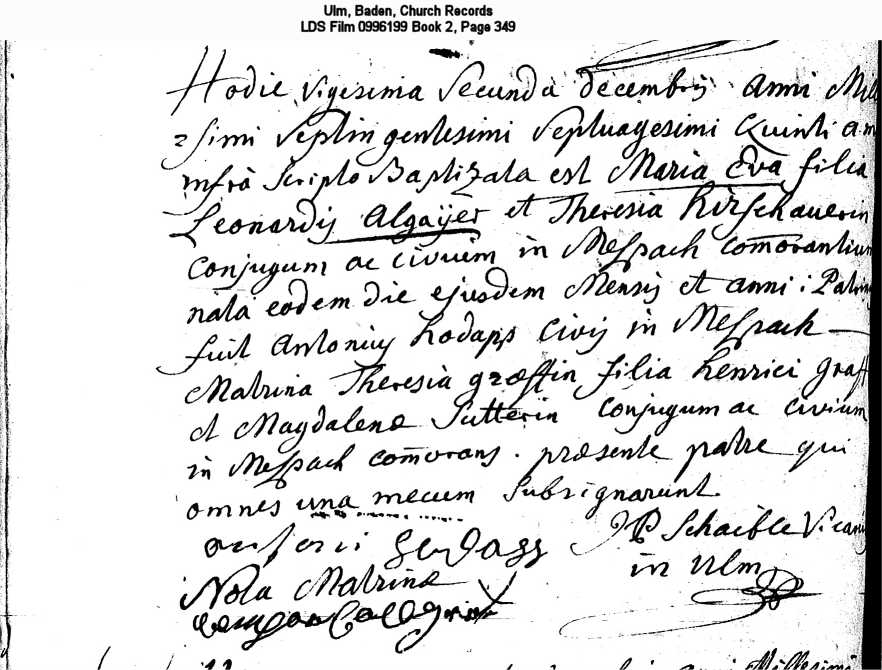 Ulm, Baden, Church Records
LDS Film 0996199 Book 2, Page 349
Hodie vigesima secunda decembris anni Mill
esimi septingentesimi septuagesimi quinti a me
infra scripto Baptizata est Maria Eva filia
Leonardij Algaÿer et Theresia Hirschauerin
conjugum ac civium in Mespach comorantium
nata eodem die ejusdem Mensis et anni : Patrin
fuit Antonius Hodapp civis in Mespach
Matrina Theresia græffin filia henrici graff
et Magdalenæ Sutterin conjugum ac civium
in Mespach comorans . præsente patre qui
omnes una mecum subsignarunt
JP Schaible Vicarius
in Ulm
Nota Matrinæ